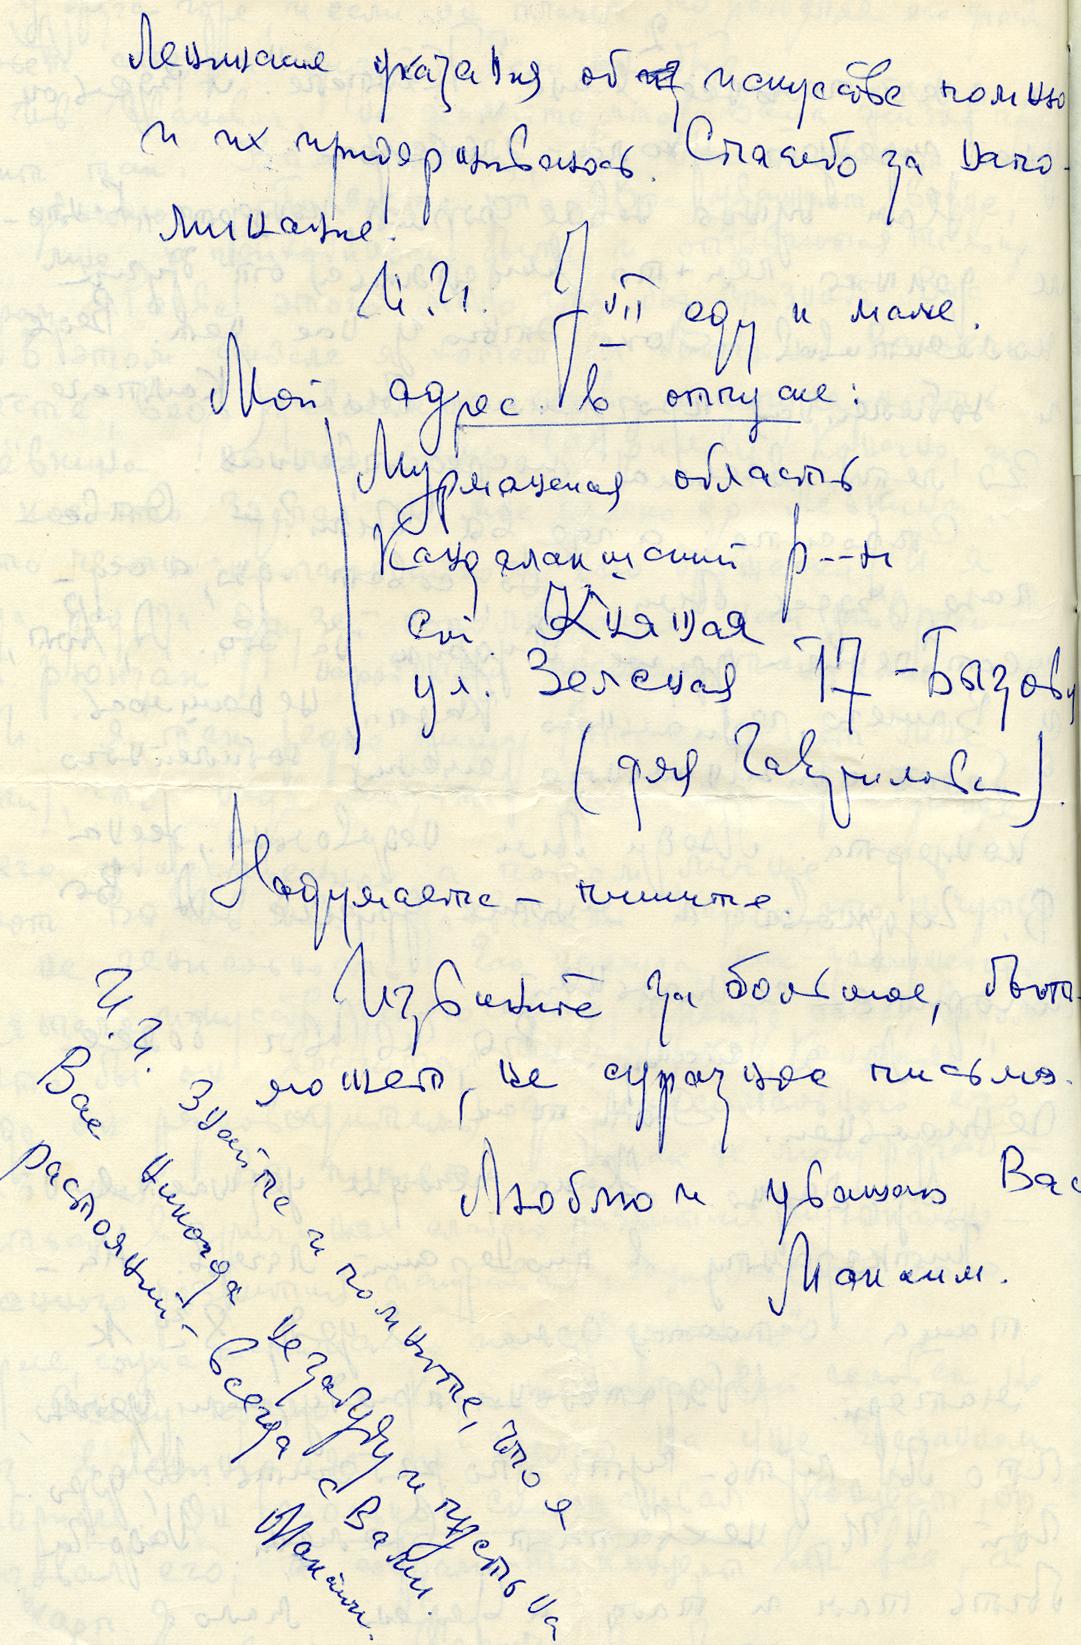 Ленинские указания об искусстве помню
и их придерживаюсь. Спасибо за напо-
минание.
И.И. 7 VII еду к маме.
Мой адрес в отпуске:
Мурманская область
Кандалакшский р-н
ст. Княжая
ул. Зеленая 17 - Бызову
(для Гаврилова).
Надумаете - пишите.
Извините за большое, быть
может, не суразное письмо.
Люблю и уважаю Вас
Максим.
И.И. Знайте и помните, что я
Вас никогда не забуду и пусть на
растоянии - всегда с Вами.
Максим.